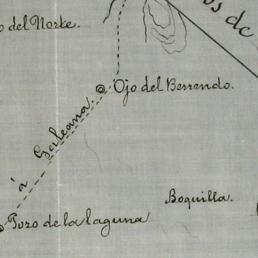 del Norte.
os de
Ojo del Berrendo.
á Galeana.
Boquilla.
Pozo de la laguna